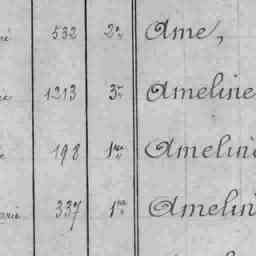 532 2e Ame,
1213 3e Ameline
198 1re Ameline
337 1re Amelin